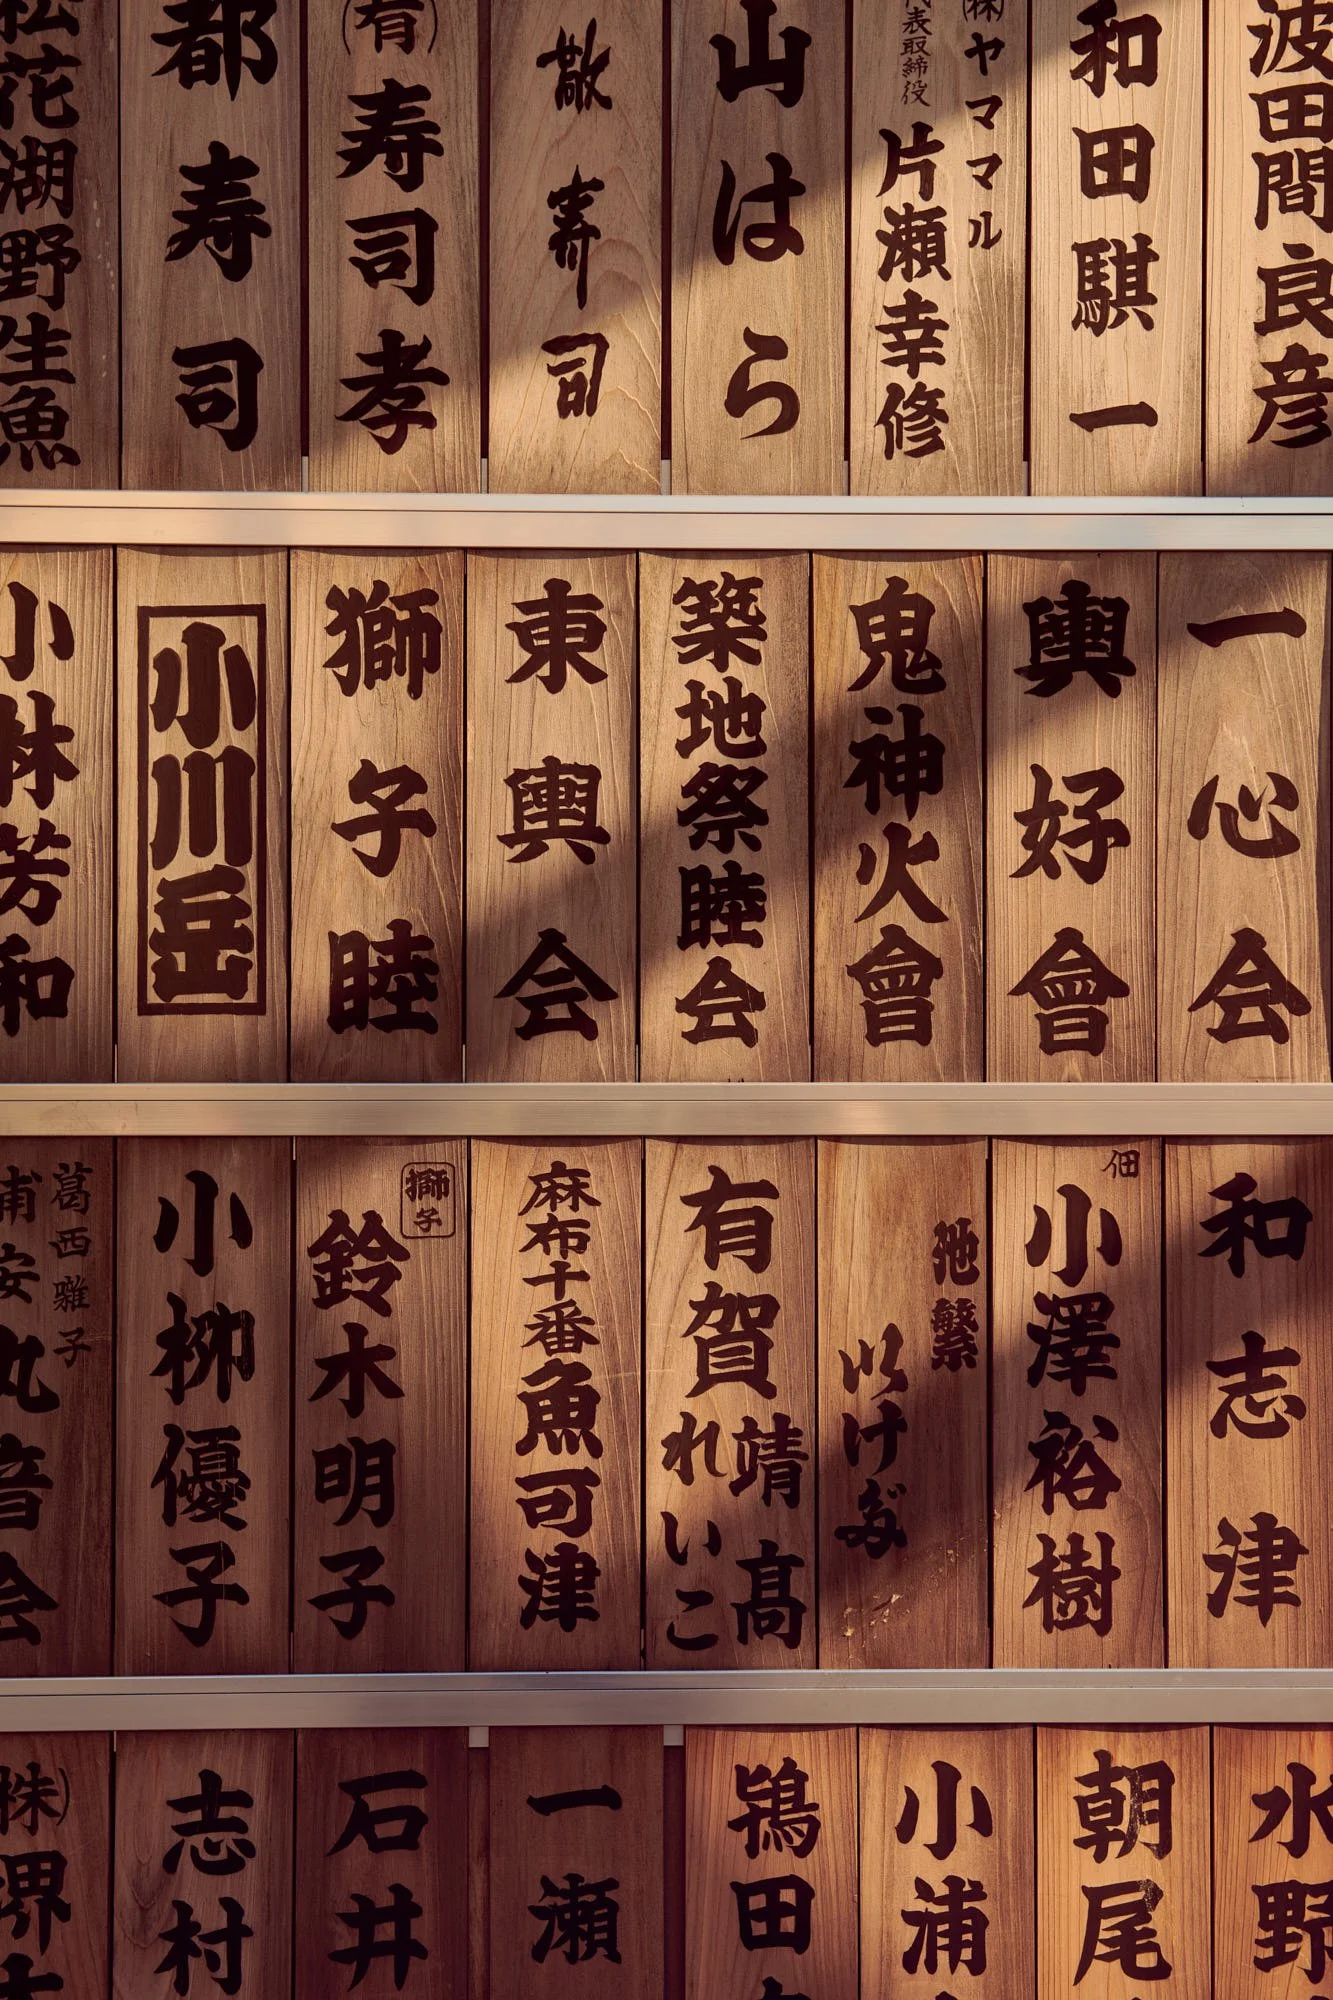 波田間良彦
和田騏一
㈱ヤママル
代表取締役
片瀬幸修
山はら
寿司
㈲寿司孝
都寿司
松花湖野生魚
一心会
輿好會
鬼神火會
築地祭睦会
東輿会
獅子睦
小川岳
小林芳和
和志津
佃
小澤裕樹
池繁
いけだ
有賀
靖高
れいこ
麻布十番魚可津
獅子
鈴木明子
小栁優子
葛西囃子
浦安丸音会
水野
朝尾
小浦
鴇田
一瀬
石井
志村
㈱堺